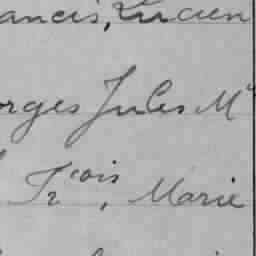 ancis, Lucien
orges Jules M
Frçois, Marie